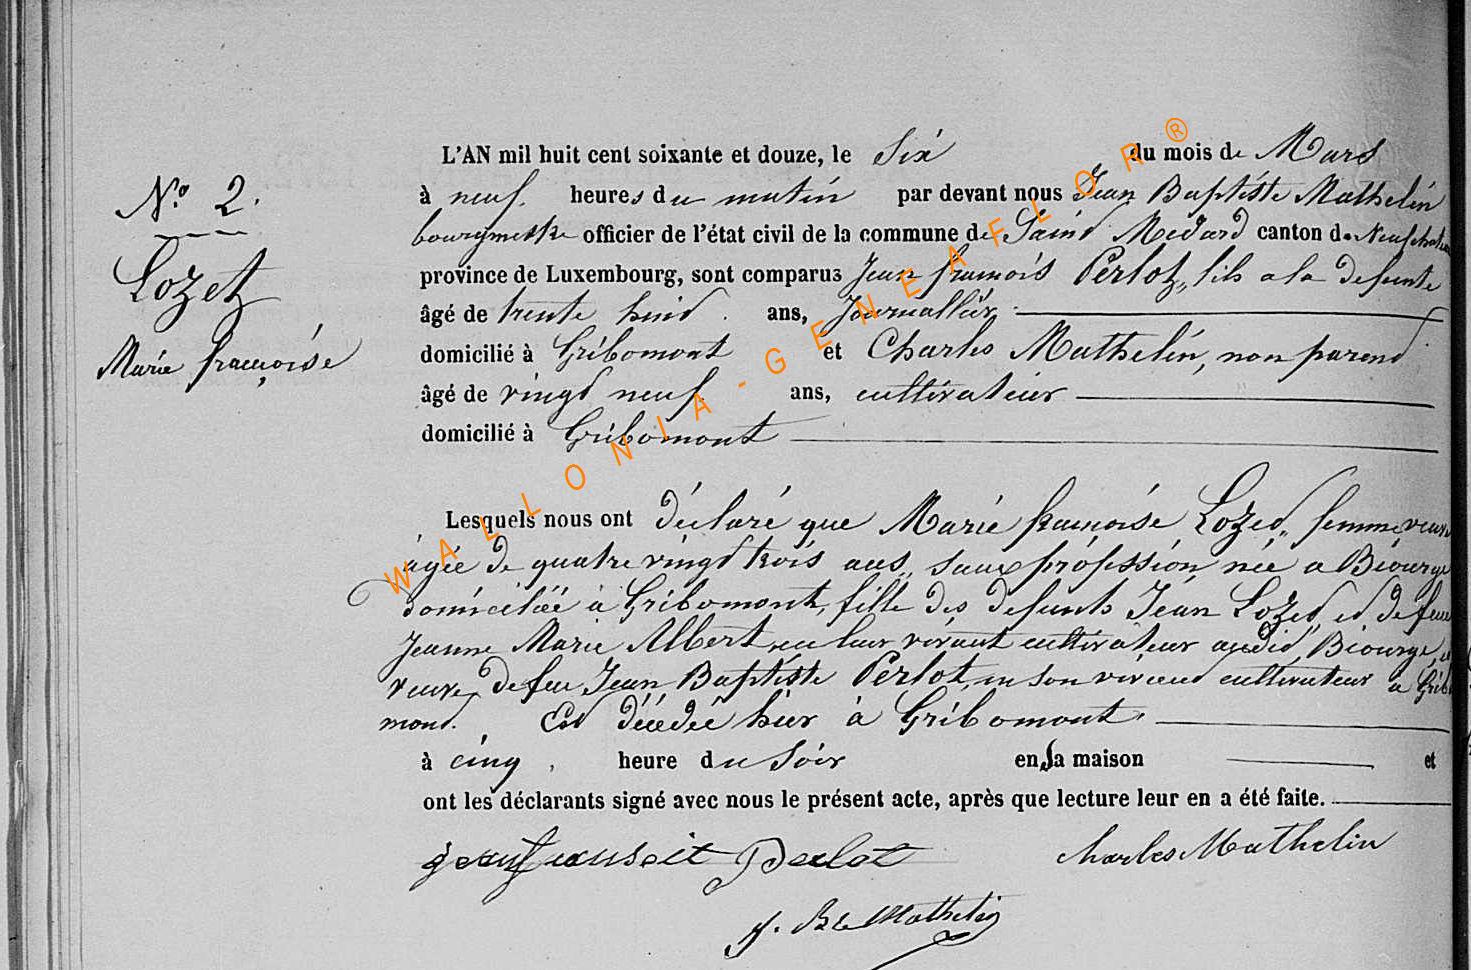 L'AN mil huit cent soixante et douze, le Six du mois de Mars
N.o 2.
à neuf heures du matin par devant nous Jean Baptiste Mathelin
bourgmestre officier de l'état civil de la commune de Saint Médard canton de Neufchateau
Lozet
province de Luxembourg, sont comparus Jean françois Perlot, fils a la defunte
âgé de trente huit ans, Journallier
Marie françoise
domicilié à Gribomont et Charles Mathelin, non parend
âgé de vingt neuf ans, cultivateur
domicilié à Gribomont
Lesquels nous ont déclaré que Marie françoise Lozet, femme veuve
âgée de quatre vingt trois ans, sans profession née a Biourge
domiciliée à Gribomont, fille des defunts Jean Lozet et de feue
Jeanne Marie Albert en leur vivant cultivateur audit Biourge, et
veuve de feu Jean Baptiste Perlot, en son vivant cultivateur a Gribo
mont. Est décédée hier à Gribomont.
à cinq heure du soir en sa maison et
ont les déclarants signé avec nous le présent acte, après que lecture leur en a été faite.
Perlot Charles Mathelin
J. Bte Mathelin
WALLONIA-GENEAFLOR®